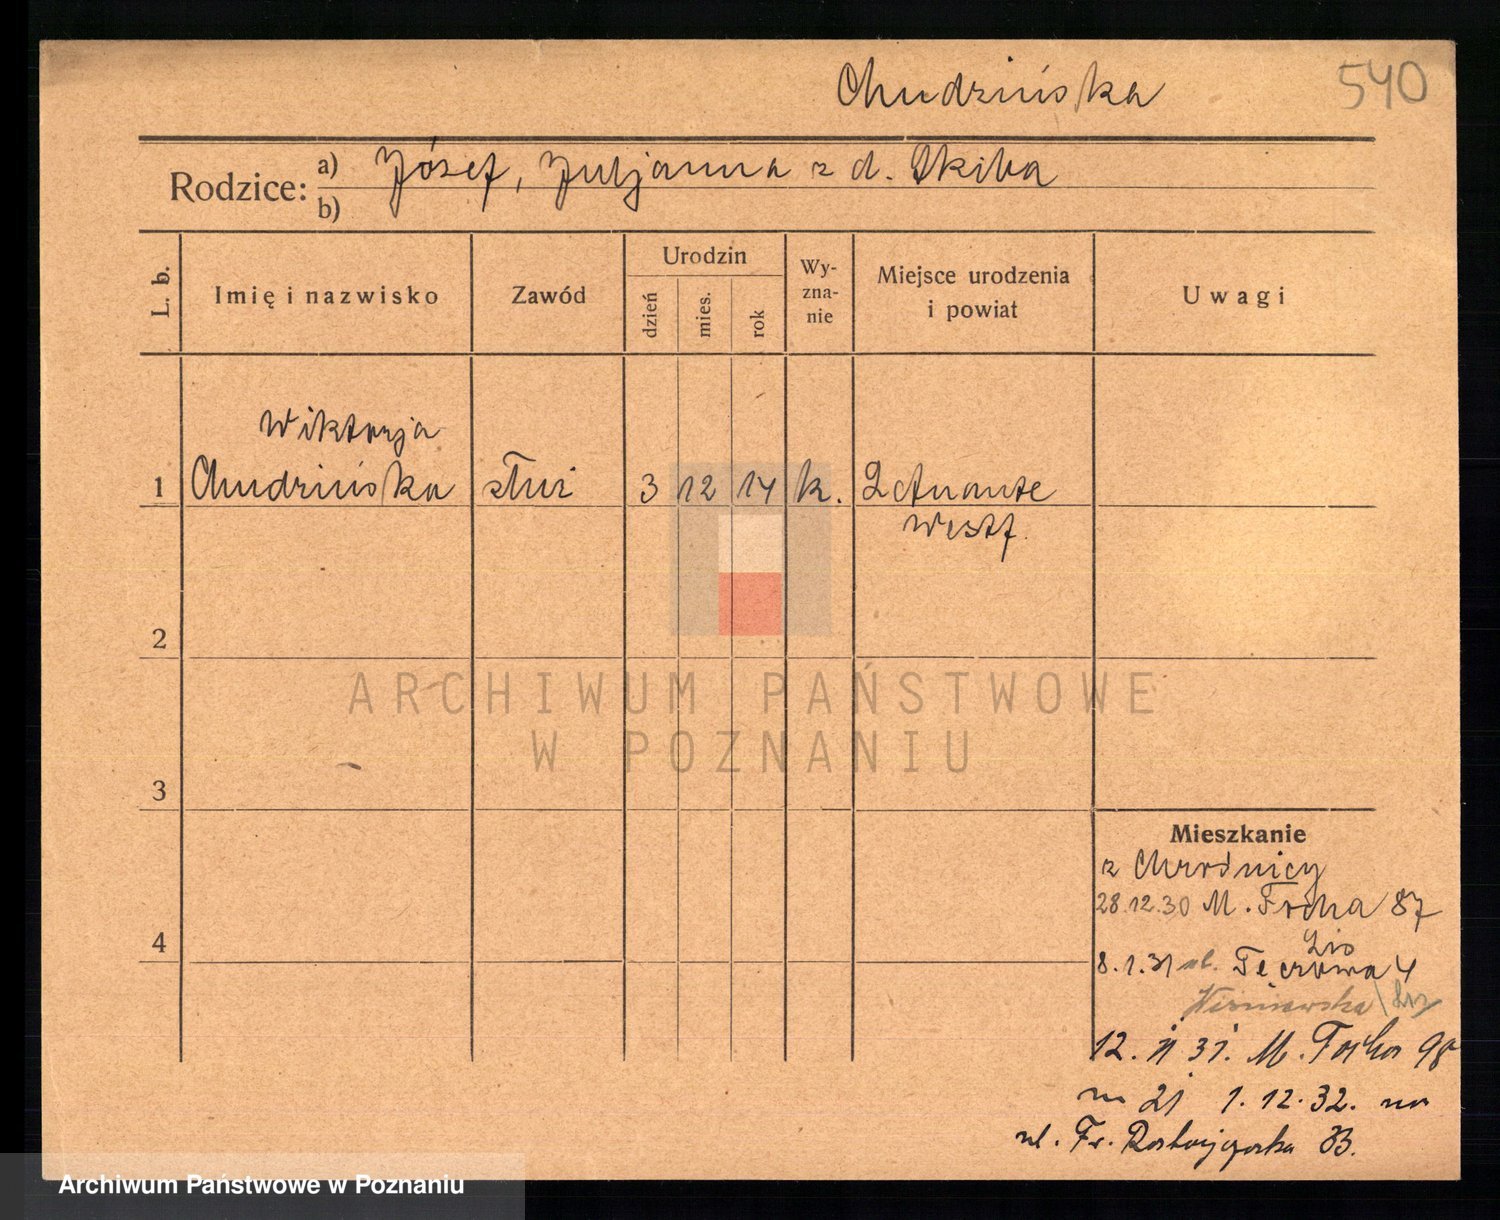 Chudzińska
540
Rodzice: a) Józef, Juljanna z d. Skiba
b)
L. b.
Imię i nazwisko
Zawód
Urodzin
dzień
mies.
rok
Wy-
zna-
nie
Miejsce urodzenia
i powiat
Uwagi
Wiktorja
1 Chudzińska służ 3 12 14 k.
Westf.
2
ARCHIWUM PAŃSTWOWE
W POZNANIU
3
Mieszkanie
z Chrośnicy
28.12.30 M. Focha 87
8.1.31 ul. Tęczowa 4
Wiśniewska
12. II 31. M. Focha 98
m 21 1.12.32. na
ul. Fr. Ratajczaka 33.
4
Archiwum Państwowe w Poznaniu